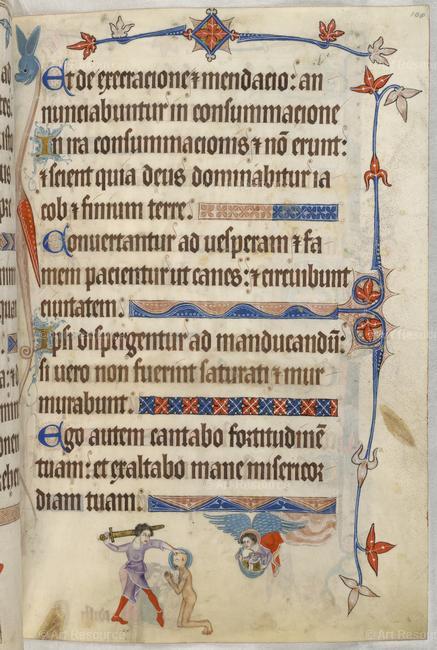 106
Et de execracione ⁊ mendacio: an
nunciabuntur in consummacione
In ira consummacionis ⁊ nō erunt:
⁊ scient quia deus dominabitur ia
cob ⁊ finium terre.
Conuertantur ad uesperam ⁊ fa
mem pacientur ut canes: ⁊ circuibunt
ciuitatem.
Ipsi dispergentur ad manducandū:
si uero non fuerint saturati ⁊ mur
murabunt.
Ego autem cantabo fortitudinē
tuam: et exaltabo mane misericor
diam tuam.
© Art Resource
© Art Resource